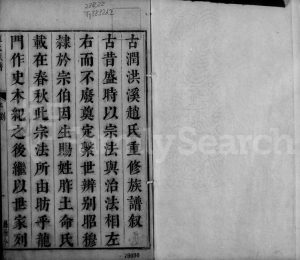 古潤洪溪趙氏重修族譜叙
古昔盛時以宗法與治法相左
右而不廢奠定繫世辨別昭穆
隸於宗伯因生賜姓胙土命氏
載在春秋此宗法所由昉乎龍
門作史本紀之後繼以世家列